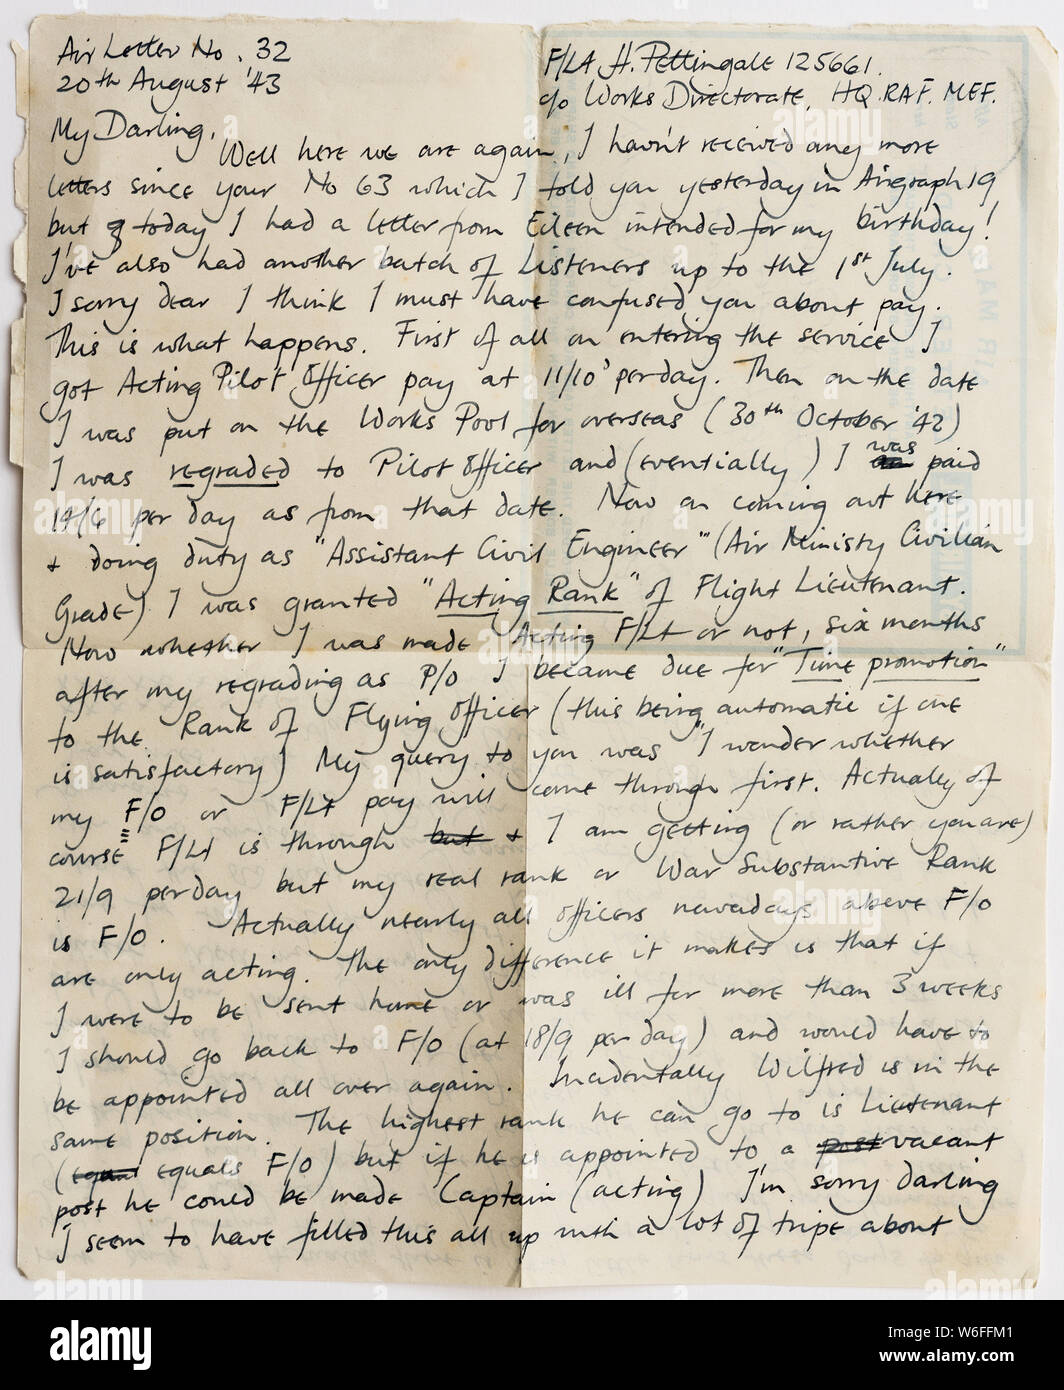 Air Letter No. 32
20th August '43
F/Lt H. Pettingale 125661.
c/o Works Directorate, HQ. RAF. MEF.
My Darling,
Well here we are again, I havn't received any more
letters since your No 63 which I told you yesterday in Airgraph 19
but today I had a letter from Eileen intended for my birthday!
I've also had another batch of Listeners up to the 1st July.
I sorry dear I think I must have confused you about pay.
This is what happens. First of all on entering the service I
got Acting Pilot Officer pay at 11/10' per day. Then on the date
I was put on the Works Pool for overseas (30th October '42)
I was regraded to Pilot Officer and (eventially) I was paid
14/6 per day as from that date. Now on coming out here
+ doing duty as "Assistant Civil Engineer" (Air Ministry Civilian
Grade) I was granted "Acting Rank" of Flight Lieutenant.
Now whether I was made Acting F/Lt or not, six months
after my regrading as P/O I became due for "Time promotion"
to the Rank of Flying Officer (this being automatic if one
is satisfactory) My query to you was "I wonder whether
my F/O or F/Lt pay will come through first. Actually of
course F/Lt is through but + I am getting (or rather you are)
21/9 per day but my real rank or War Substantive Rank
is F/O. Actually nearly all officers nowadays above F/O
are only acting. The only difference it makes is that if
I were to be sent home or was ill for more than 3 weeks
I should go back to F/O (at 18/9 per day) and would have to
be appointed all over again. Incidentally Wilfred is in the
same position. The highest rank he can go to is Lieutenant
(equals F/O) but if he is appointed to a post vacant
post he could be made Captain (acting) I'm sorry darling
I seem to have filled this all up with a lot of tripe about
alamy
Image ID: W6FFM1
www.alamy.com